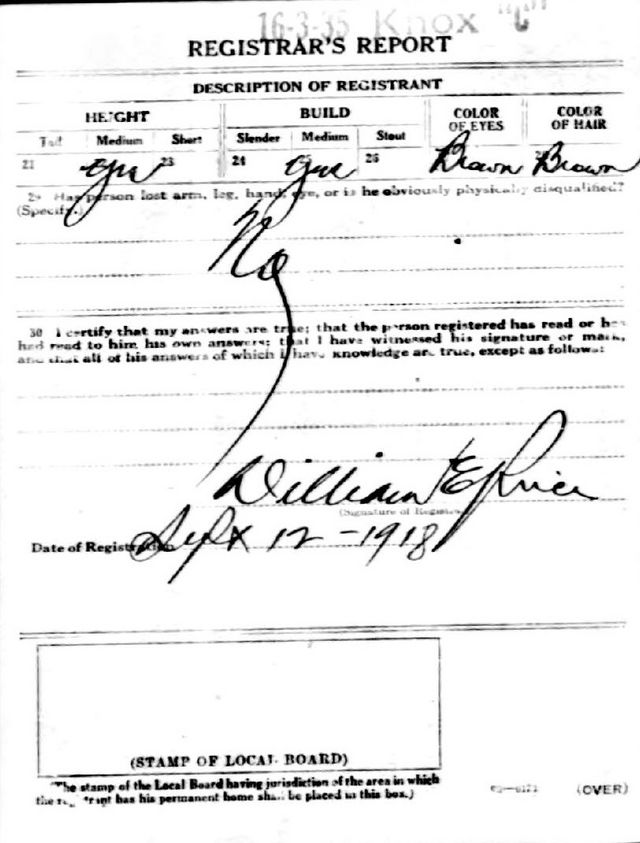 16-3-35 Knox "C"
REGISTRAR'S REPORT
DESCRIPTION OF REGISTRANT
HEIGHT BUILD COLOR OF EYES COLOR OF HAIR
Tall Medium Short Slender Medium Stout
21 yes 23 24 yes 26 Brown Brown
29 Has person lost arm, leg, hand, eye, or is he obviously physically disqualified?
(Specify.)
No
30 I certify that my answers are true; that the person registered has read or has
had read to him his own answers; that I have witnessed his signature or mark,
and that all of his answers of which I have knowledge are true, except as follows:
William E Price
(Signature of Registrar)
Date of Registration Sept 12 - 1918
(STAMP OF LOCAL BOARD)
(The stamp of the Local Board having jurisdiction of the area in which
the registrant has his permanent home shall be placed in this box.)
(OVER)